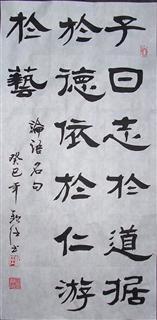 子曰志於道據
於德依於仁游
於藝
論語名句
癸巳年